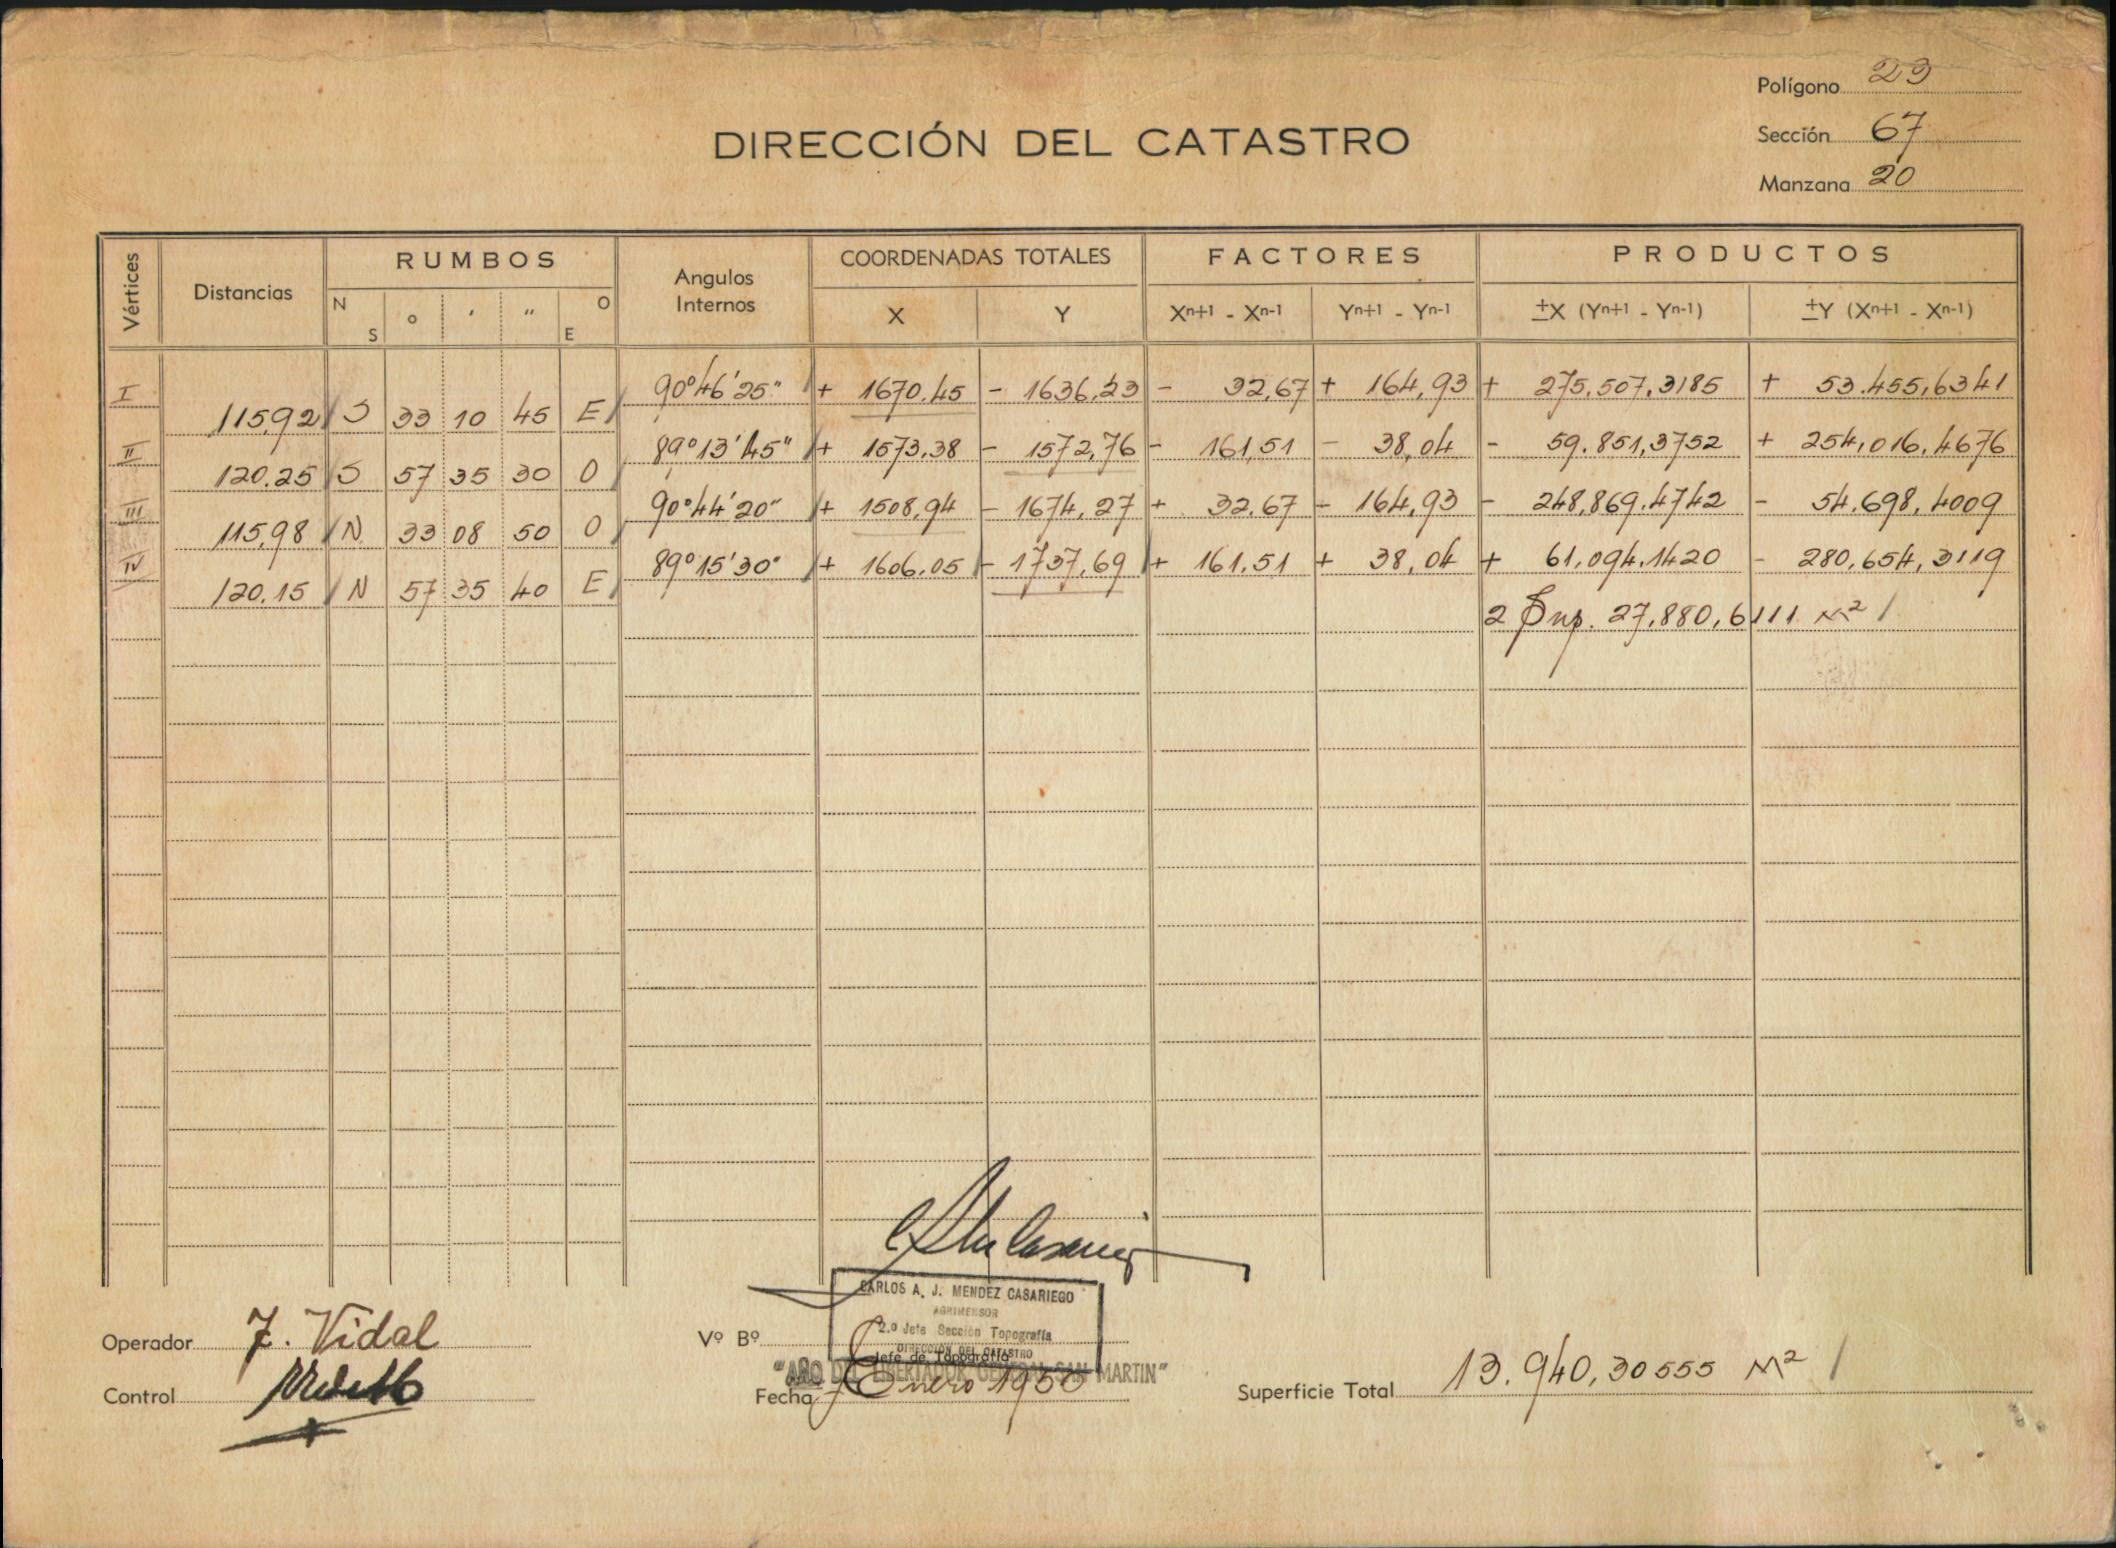 Polígono 23
DIRECCIÓN DEL CATASTRO
Sección 67
Manzana 20
Vértices Distancias RUMBOS Angulos Internos COORDENADAS TOTALES FACTORES PRODUCTOS
N S ° ' " O E X Y Xⁿ⁺¹ - Xⁿ⁻¹ Yⁿ⁺¹ - Yⁿ⁻¹ ±X (Yⁿ⁺¹ - Yⁿ⁻¹) ±Y (Xⁿ⁺¹ - Xⁿ⁻¹)
I 90°46'25" + 1670.45 - 1636,23 - 32,67 + 164,93 + 275,507,3185 + 53.455,6341
115,92 S 33 10 45 E
II 89°13'45" + 1573,38 - 1572,76 - 161,51 - 38,04 - 59.851,3752 + 254,016,4676
120.25 S 57 35 30 O
III 90°44'20" + 1508,94 - 1674,27 + 32,67 - 164,93 - 248,869.4742 - 54.698,4009
115,98 N 33 08 50 O
IV 89°15'30" + 1606,05 - 1737,69 + 161,51 + 38,04 + 61,094,1420 - 280,654,3119
120.15 N 57 35 40 E
2 Sup. 27,880,6111 M² /
CARLOS A. J. MENDEZ CASARIEGO
AGRIMENSOR
2.º Jefe Sección Topografía
DIRECCION DEL CATASTRO
Jefe de Topografía
Operador J. Vidal
Vº Bº
"AÑO DEL LIBERTADOR GENERAL SAN MARTIN"
Control
Fecha Enero 1950
Superficie Total 13.940,30555 M² /